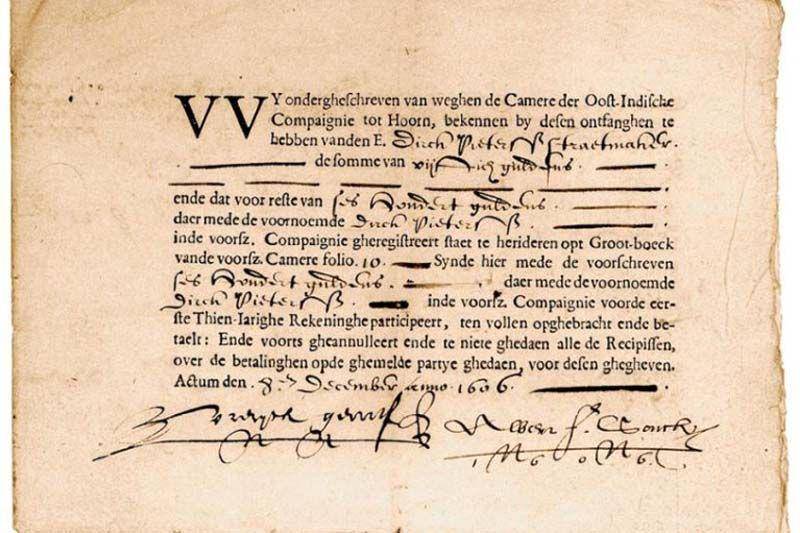 VVY ondergheschreven van weghen de Camere der Oost-Indische
Compaignie tot Hoorn, bekennen by desen ontfanghen te
hebben vanden E. Dirck Pietersß Straetmaker.
de somme van vijftich guldens
ende dat voor reste van ses Hondert guldens
daer mede de voornoemde Dirck Pietersß
inde voorsz. Compaignie gheregistreert staet te herideren opt Groot-boeck
vande voorsz. Camere folio. 10. Synde hier mede de voorschreven
ses Hondert guldens. daer mede de voornoemde
Dirck Pietersß. inde voorsz. Compaignie voorde eer-
ste Thien-Iarighe Rekeninghe participeert, ten vollen opghebracht ende be-
taelt: Ende voorts gheannulleert ende te niete ghedaen alle de Recipissen,
over de betalinghen opde ghemelde partye ghedaen, voor desen ghegheven.
Actum den. December anno. 1606.